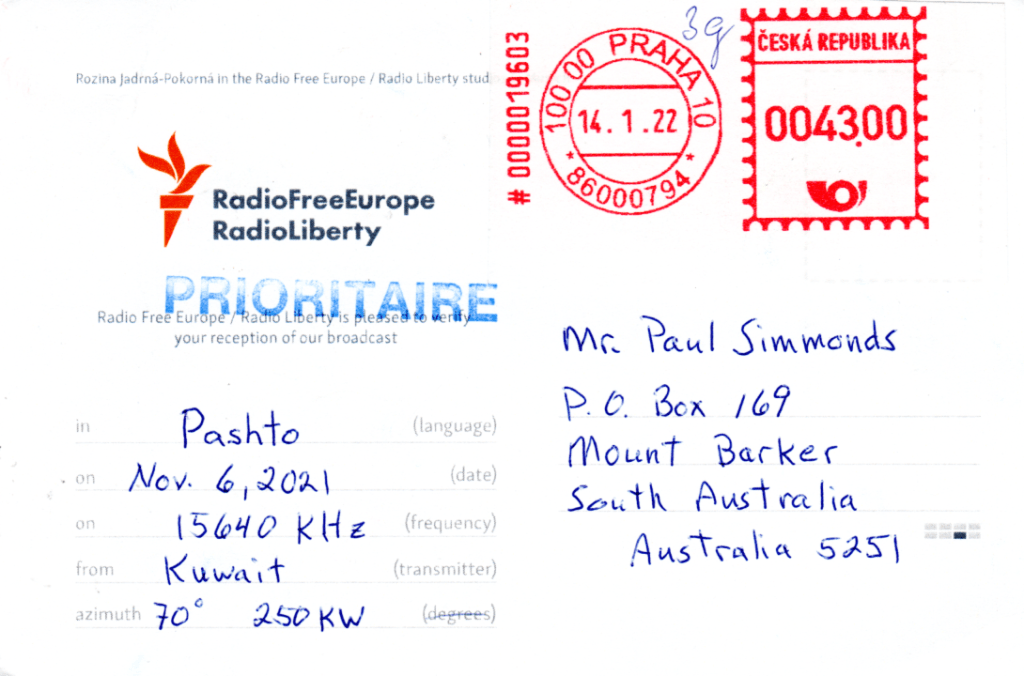 Rozina Jadrná-Pokorná in the Radio Free Europe / Radio Liberty stud
RadioFreeEurope
RadioLiberty
PRIORITAIRE
Radio Free Europe / Radio Liberty is pleased to verify
your reception of our broadcast
in Pashto (language)
on Nov. 6, 2021 (date)
on 15640 KHz (frequency)
from Kuwait (transmitter)
azimuth 70° 250 KW (degrees)
# 0000019603
100 00 PRAHA 10
14.1.22
* 86000794 *
3g
ČESKÁ REPUBLIKA
004300
Mr. Paul Simmonds
P.O. Box 169
Mount Barker
South Australia
Australia 5251